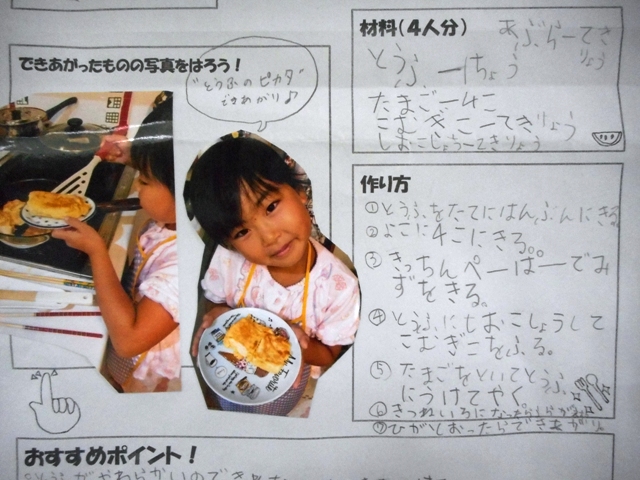 できあがったものの写真をはろう！
"とうふのピカタ"
できあがり♪
材料（4人分）
あぶらーてき
りょう
とうふ ーーちょう
たまごー4こ
こむぎこーてきりょう
しおこしょうーてきりょう
作り方
①とうふをたてにはんぶんにきる
②よこに4こにきる。
③きっちんペーぱーでみ
ずをきる。
④とうふにしおこしょうして
こむぎこをふる。
⑤たまごをといてとうふ
につけてやく
⑥きつねいろになったらひっくり
⑦ひがとおったらできあがり
おすすめポイント！
とうふがやわらかいので